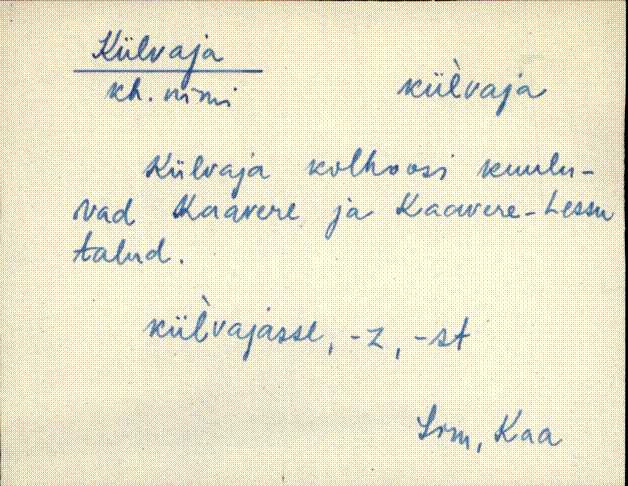 Külvaja
kh. nimi
kül̀vaja
Külvaja kolhoosi kuulu-
vad Kaavere ja Kaavere-Lessu
talud.
kül̀vajasse, -z, -st
Lrm, Kaa